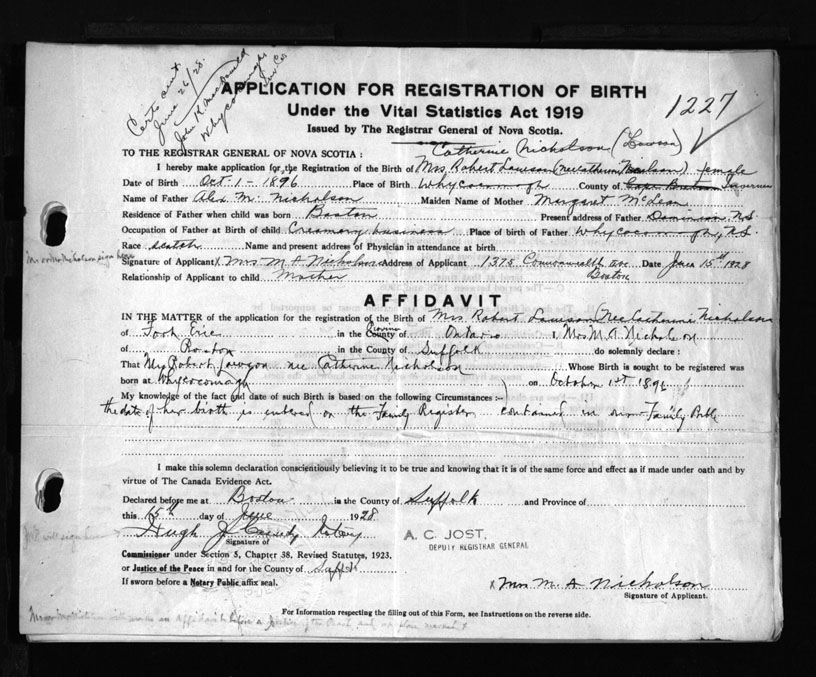 Certs sent.
June 26/28.
John K. MacDonald
Whycocomagh
Inv. Co.
APPLICATION FOR REGISTRATION OF BIRTH
Under the Vital Statistics Act 1919
1227
Issued by The Registrar General of Nova Scotia.
Catherine Nicholson (Lawson)
TO THE REGISTRAR GENERAL OF NOVA SCOTIA :
I hereby make application for the Registration of the Birth of Mrs Robert Lawson (nee Catherine Nicholson) female
Date of Birth Oct. 1 - 1896 Place of Birth Whycocomagh County of Cape Breton Inverness
Name of Father Alex M. Nicholson Maiden Name of Mother Margaret McLean
Residence of Father when child was born Boston Present address of Father Dominion N.S.
Occupation of Father at Birth of child Creamery business Place of birth of Father Whycocomagh, N.S.
Race scotch Name and present address of Physician in attendance at birth
Signature of Applicant x Mrs M A Nicholson Address of Applicant 1375 Commonwealth Ave Date June 15th 1928
Boston
Relationship of Applicant to child Mother
AFFIDAVIT
IN THE MATTER of the application for the registration of the Birth of Mrs Robert Lawson (Nee Catherine Nicholson
of Fort Erie in the County Province of Ontario I, Mrs M A Nicholson
of Boston in the County of Suffolk do solemnly declare :
That Mrs Robert Lawson nee Catherine Nicholson Whose Birth is sought to be registered was
born at Whycocomagh on October 1st 1896
My knowledge of the fact and date of such Birth is based on the following Circumstances :—
the date of her birth is entered on the Family Register contained in our Family Bible
I make this solemn declaration conscientiously believing it to be true and knowing that it is of the same force and effect as if made under oath and by
virtue of The Canada Evidence Act.
Declared before me at Boston in the County of Suffolk and Province of
this 15th day of June 1928
Hugh J Notary
A. C. JOST,
DEPUTY REGISTRAR GENERAL
Signature of
Commissioner under Section 5, Chapter 38, Revised Statutes, 1923.
or Justice of the Peace in and for the County of Suffolk
If sworn before a Notary Public affix seal.
x Mrs M. A Nicholson
Signature of Applicant.
For Information respecting the filling out of this Form, see Instructions on the reverse side.